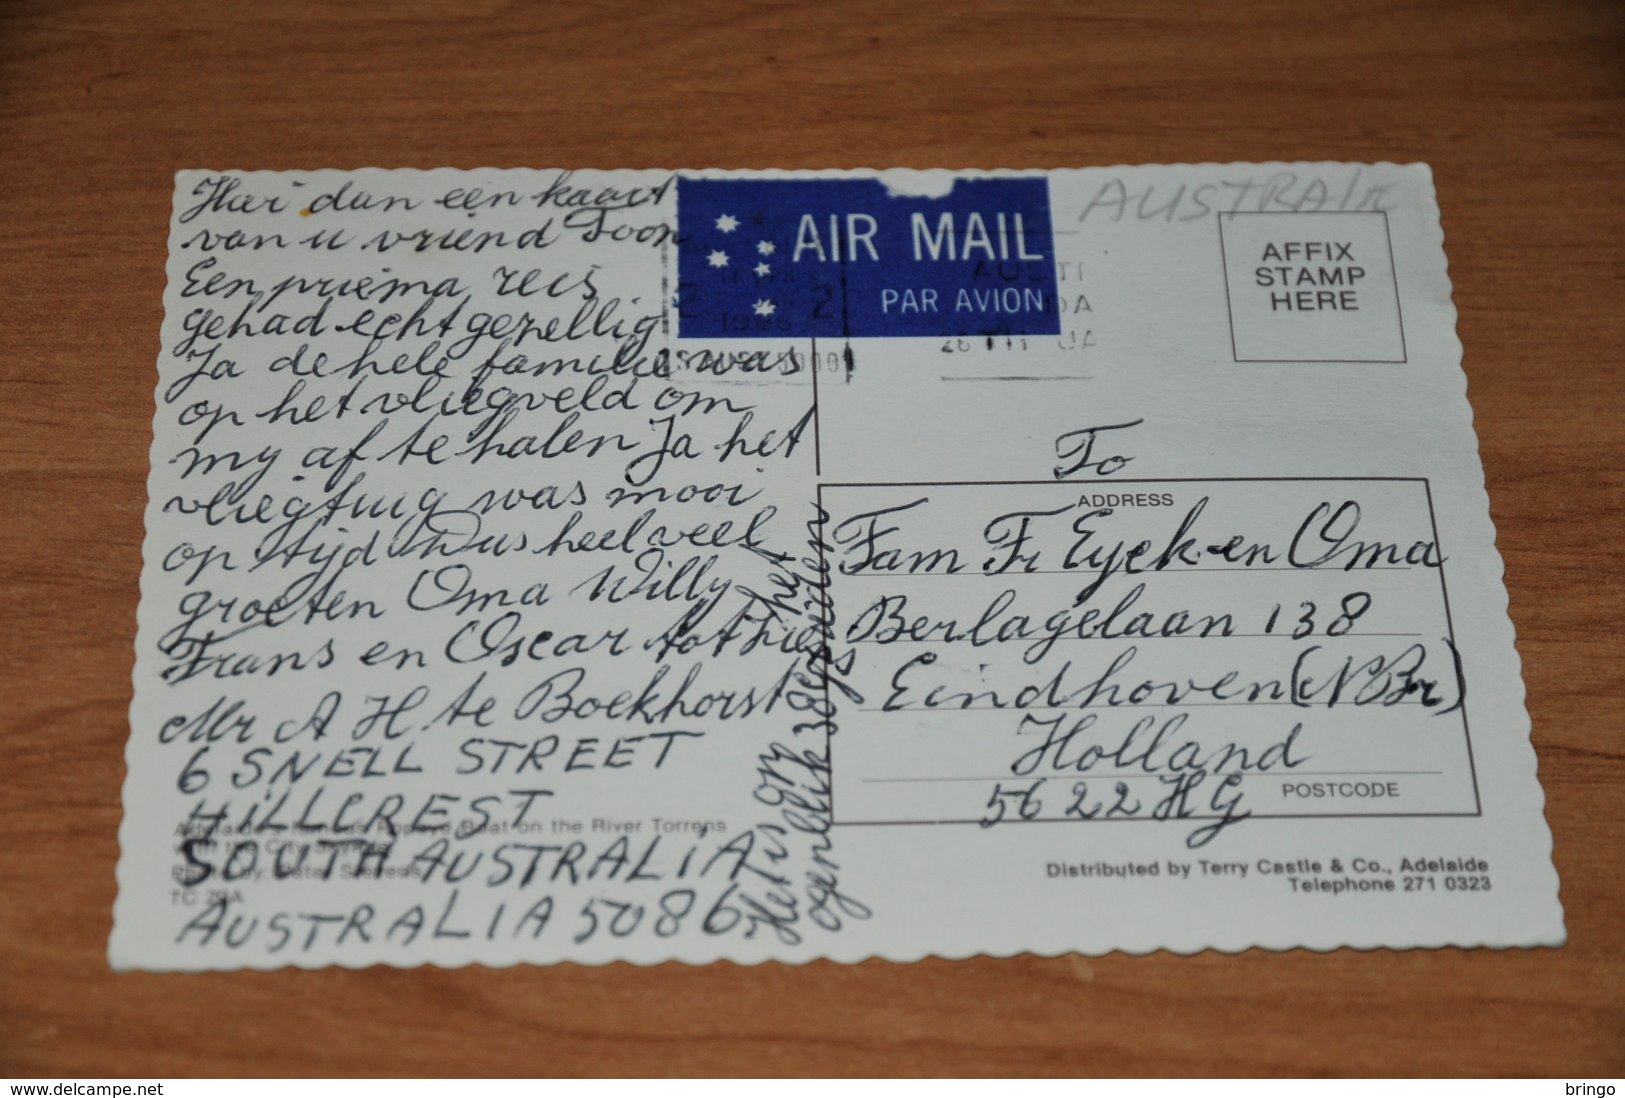 Hier dan een kaart
van u vriend Toon
Een priema reis
gehad echt gezellig
Ja de hele familie was
op het vliegveld om
my af te halen Ja het
vliegtuig was mooi
op tijd Dus heel veel
groeten Oma Willy
Frans en Oscar tot ziens
Mr A H te Boekhorst
6 SNELL STREET
HILLCREST
SOUTH AUSTRALIA
AUSTRALIA 5086
Het is op het
ogenblik 38 gr
Adelaide's famous Popeye Boat on the River Torrens
with the City
Photo by: Peter
AIR MAIL
PAR AVION
AUSTRALIE
AFFIX
STAMP
HERE
To
ADDRESS
Fam Fr Eyck-en Oma
Berlagelaan 138
Eindhoven (N Br)
Holland
5622 HG POSTCODE
Distributed by Terry Castle & Co., Adelaide
Telephone 271 0323
delcampe.net
bringo